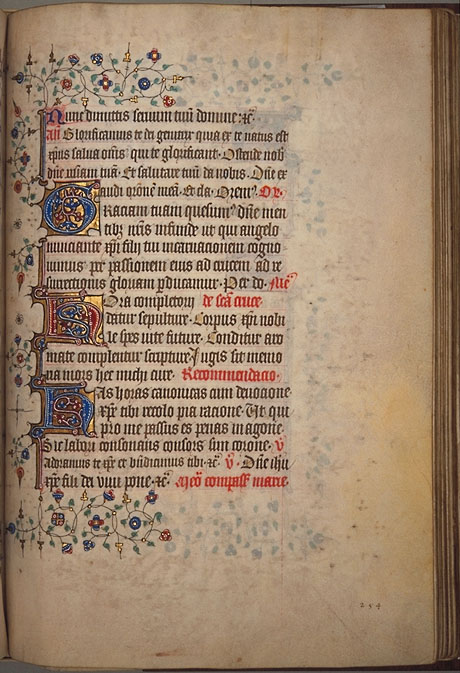 Nunc dimittis seruum tuū domine · ⁊c̄ ·
añ Glorificamus te dei genitrix quia ex te natus est
xp̄us saluā om̄s qui te glorificant · Ostende nob̄
dn̄e mīam tuā · Et salutare tuū da nobis · Dn̄e ex
audi orōne meā · Et cla · Orem⁹ · Or̄ ·
Graciam tuam quesum⁹ dn̄e men
tibꝫ nr̄is infunde ut qui angelo
nunciante xp̄i filij tui incarnacionem cogno
uimus per passionem eius ad crucem ad re
surrectionis gloriam perducamur · Per do ·
Hora completorij de sc̄a cruce
datur sepulture · Corpus xp̄i nobi
le spes uite future · Conditur aro
mate complentur scripture Jugis sit memo
ria mors hec michi cure · Recommendacio ·
Has horas canonicas cum deuocione
xp̄e tibi recolo pia racione · Ut qui
pro me passus es penas in agone ·
Sic labori consonans consors sim corone · v̄
Adoramus te xp̄e et bn̄dicimus tibi · ⁊c̄ · v̄ · Dn̄e ihū
xp̄e fili dei viui pone · ⁊c̄ · compass̄ marie
254